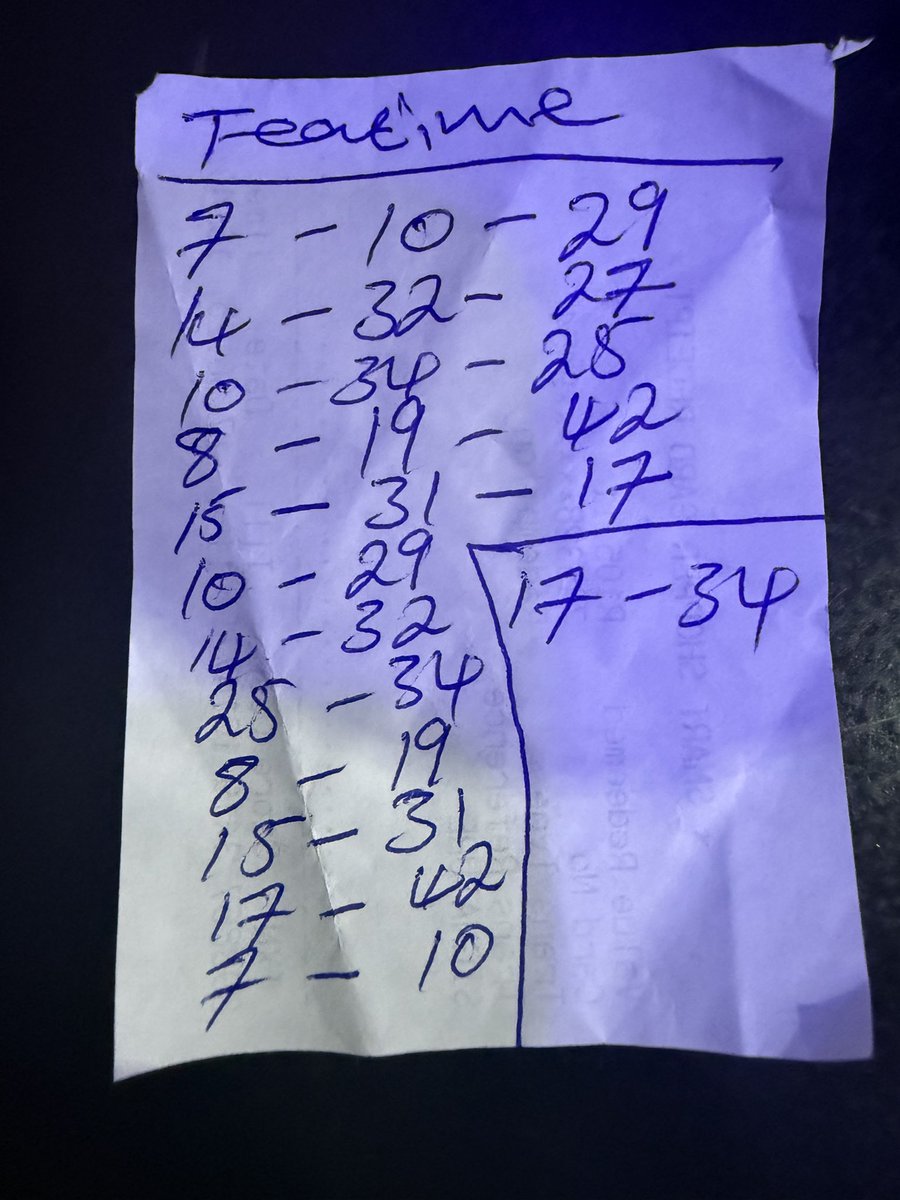 Teatime
7 - 10 - 29
14 - 32 - 27
10 - 34 - 25
8 - 19 - 42
15 - 31 - 17
10 - 29
14 - 32
25 - 34
8 - 19
15 - 31
17 - 42
7 - 10
17 - 34